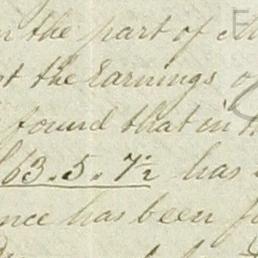 the part of
the Earnings
found that in
63.5.7½ has
has been